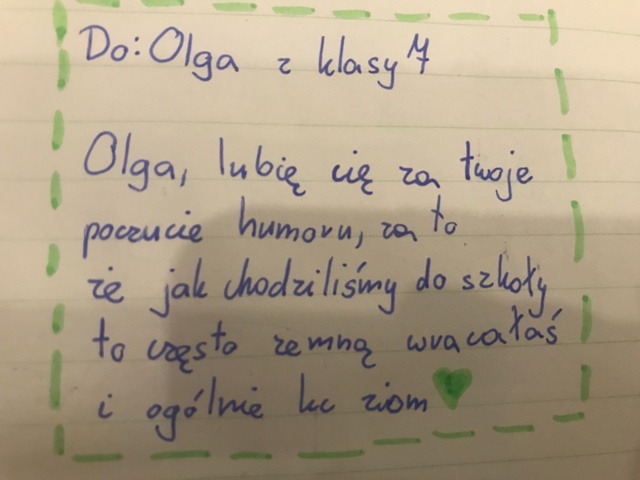 Do: Olga z klasy 7
Olga, lubię cię za twoje
poczucie humoru, za to
że jak chodziliśmy do szkoły
to często zemną wracałaś
i ogólnie kc ziom